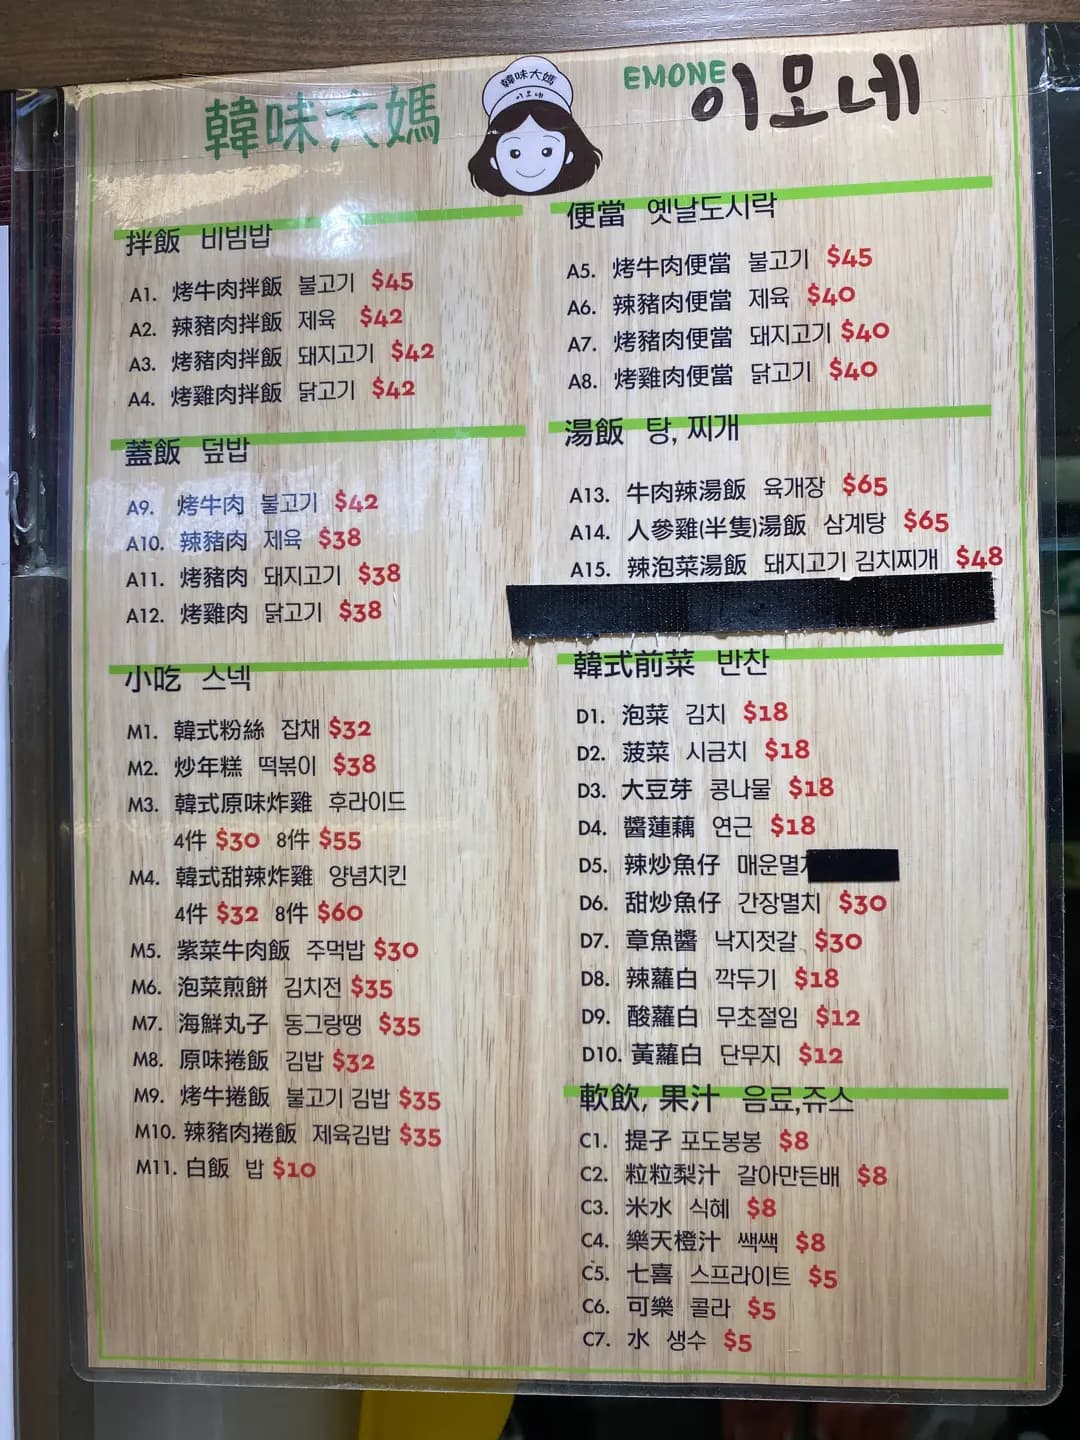 韓味大媽
韓味大媽
이모네
EMONE 이모네
拌飯 비빔밥
A1. 烤牛肉拌飯 불고기 $45
A2. 辣豬肉拌飯 제육 $42
A3. 烤豬肉拌飯 돼지고기 $42
A4. 烤雞肉拌飯 닭고기 $42
蓋飯 덮밥
A9. 烤牛肉 불고기 $42
A10. 辣豬肉 제육 $38
A11. 烤豬肉 돼지고기 $38
A12. 烤雞肉 닭고기 $38
小吃 스넥
M1. 韓式粉絲 잡채 $32
M2. 炒年糕 떡볶이 $38
M3. 韓式原味炸雞 후라이드
4件 $30 8件 $55
M4. 韓式甜辣炸雞 양념치킨
4件 $32 8件 $60
M5. 紫菜牛肉飯 주먹밥 $30
M6. 泡菜煎餅 김치전 $35
M7. 海鮮丸子 동그랑땡 $35
M8. 原味捲飯 김밥 $32
M9. 烤牛捲飯 불고기 김밥 $35
M10. 辣豬肉捲飯 제육김밥 $35
M11. 白飯 밥 $10
便當 옛날도시락
A5. 烤牛肉便當 불고기 $45
A6. 辣豬肉便當 제육 $40
A7. 烤豬肉便當 돼지고기 $40
A8. 烤雞肉便當 닭고기 $40
湯飯 탕, 찌개
A13. 牛肉辣湯飯 육개장 $65
A14. 人參雞(半隻)湯飯 삼계탕 $65
A15. 辣泡菜湯飯 돼지고기 김치찌개 $48
韓式前菜 반찬
D1. 泡菜 김치 $18
D2. 菠菜 시금치 $18
D3. 大豆芽 콩나물 $18
D4. 醬蓮藕 연근 $18
D5. 辣炒魚仔 매운멸
D6. 甜炒魚仔 간장멸치 $30
D7. 章魚醬 낙지젓갈 $30
D8. 辣蘿白 깍두기 $18
D9. 酸蘿白 무초절임 $12
D10. 黃蘿白 단무지 $12
軟飲, 果汁 음료,쥬스
C1. 提子 포도봉봉 $8
C2. 粒粒梨汁 갈아만든배 $8
C3. 米水 식혜 $8
C4. 樂天橙汁 쌕쌕 $8
C5. 七喜 스프라이트 $5
C6. 可樂 콜라 $5
C7. 水 생수 $5